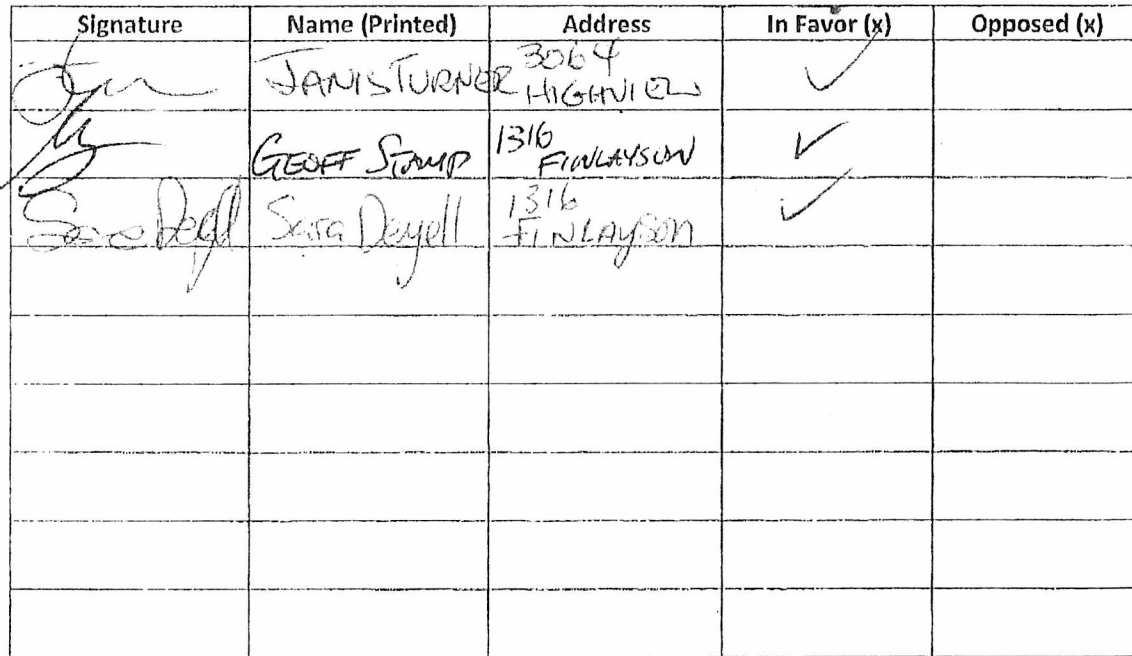 Signature Name (Printed) Address In Favor (x) Opposed (x)
JANIS TURNER 3064
HIGHVIEW
GEOFF STAMP 1316
FINLAYSON
Sara Deyell Sara Deyell 1316
FINLAYSON